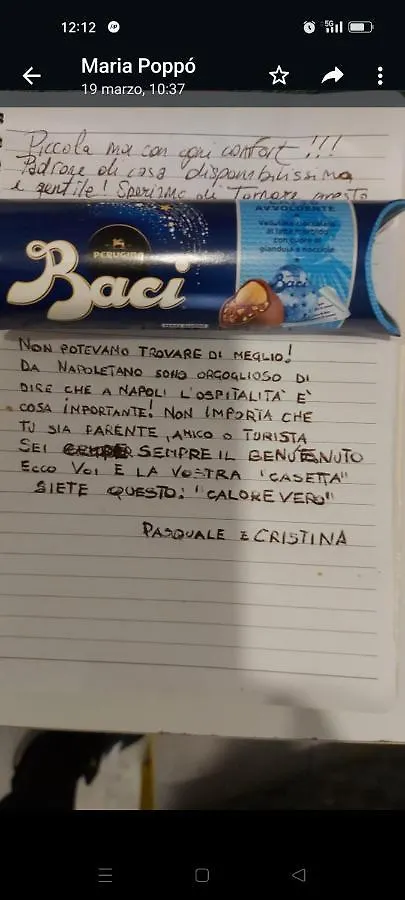 12:12
5G
Maria Poppó
19 marzo, 10:37
Piccola ma con ogni confort!!!
Padrone di casa disponibilissima
e gentile! Speriamo di Tornare presto
AVVOLGENTE
Vellutato cioccolato
al latte
con cuore di
gianduia e nocciole
PERUGINA
Baci
Baci
SENZA GLUTINE
NON POTEVAMO TROVARE DI MEGLIO!
DA NAPOLETANO SONO ORGOGLIOSO DI
DIRE CHE A NAPOLI L'OSPITALITÀ È
COSA IMPORTANTE! NON IMPORTA CHE
TU SIA PARENTE, AMICO O TURISTA
SEI SEMPRE IL BENVENUTO
ECCO VOI E LA VOSTRA "CASETTA"
SIETE QUESTO: "CALORE VERO"
PASQUALE E CRISTINA